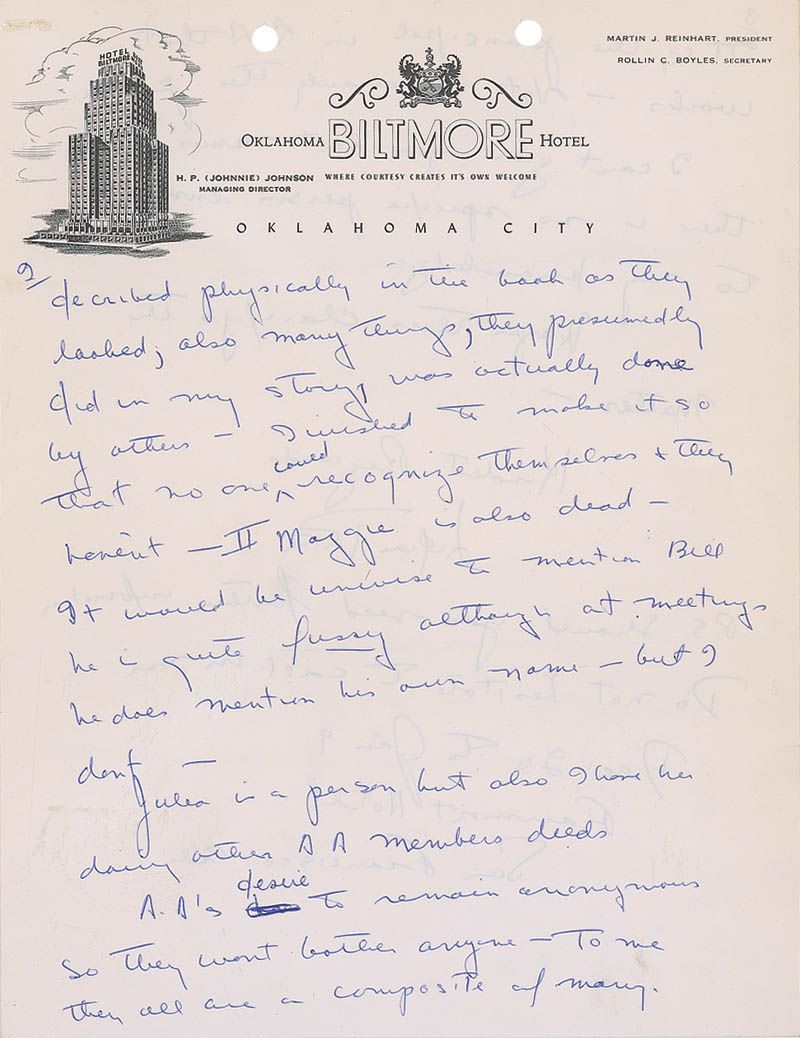 MARTIN J. REINHART, PRESIDENT
ROLLIN C. BOYLES, SECRETARY
HOTEL
BILTMORE
OKLAHOMA BILTMORE HOTEL
H. P. (JOHNNIE) JOHNSON
MANAGING DIRECTOR
WHERE COURTESY CREATES IT'S OWN WELCOME
OKLAHOMA CITY
2
decribed physically in the book as they
looked; also many things, they presumedly
did in my story, was actually done
by others - I wished to make it so
that no one could recognize themselves & they
haven't - II Maggie is also dead -
It would be unwise to mention Bill
he is quite fussy although at meetings
he does mention his own name - but I
don't
Julia is a person but also I have her
doing other A A members deeds
A. A's desire to remain anonymous
so they wont bother anyone - To me
they all are a composite of many.